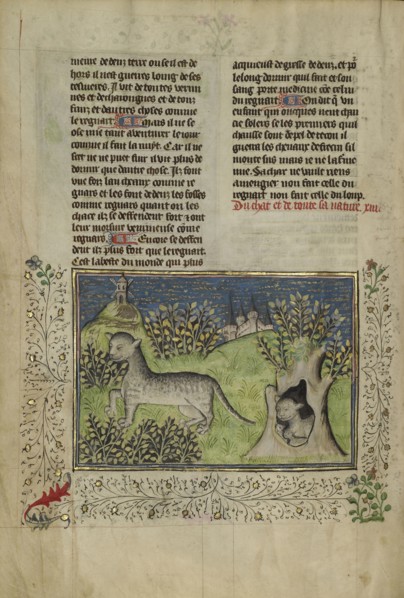 meure dedenz terre ou se il est de
hors il nest gueres loing de ses
tesnieres. Il vit de toutes vermi
nes et de charoingnes et de tou
fruiz et dautres choses comme
le regnart. Mais il ne se
ose mie tant aventurer le iour
comme il fait la nuyt. Car il ne
scet ne ne puet fuir il vit plus de
dormir que dautre chose. Ilz font
une foiz lan cheaux comme re
gnars et les font dedenz les fosses
comme regnars quant on les
chace ilz se deffendent fort z ont
leur morsure venimeuse come
regnars. Encore se deffen
dent ilz plus fort que le regnart.
Cest la beste du monde qui plus
acquiert de gresse dedenz, et po
le long dormir quil fait et son
sang porte medicine come celui
du regnart. On dit que un
enfant qui onques neut chau
cie solers se les premiers quil
chausse sont de pel de teson il
guerra les chevaux de
monte sus mais ie ne la
me. Sa char ne vault riens
a mengier non fait celle du
regnart non fait celle du loup.
Du chat et de toute sa nature. xiii.